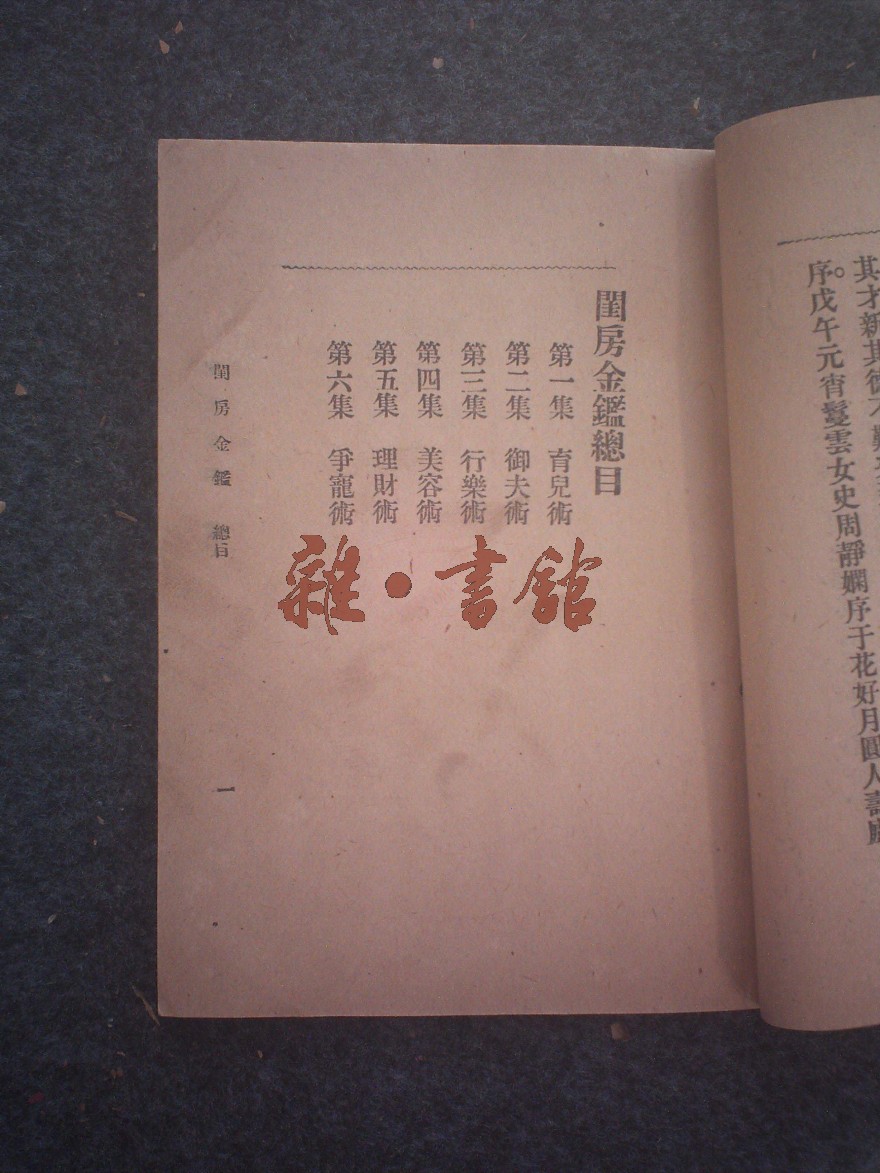 其才新其德
序。戊午元宵鬘雲女史周靜嫻序于花好月圓人壽
閨房金鑑總目
第一集　育兒術
第二集　御夫術
第三集　行樂術
第四集　美容術
第五集　理財術
第六集　爭寵術
閨房金鑑　總目
一
雜·書館